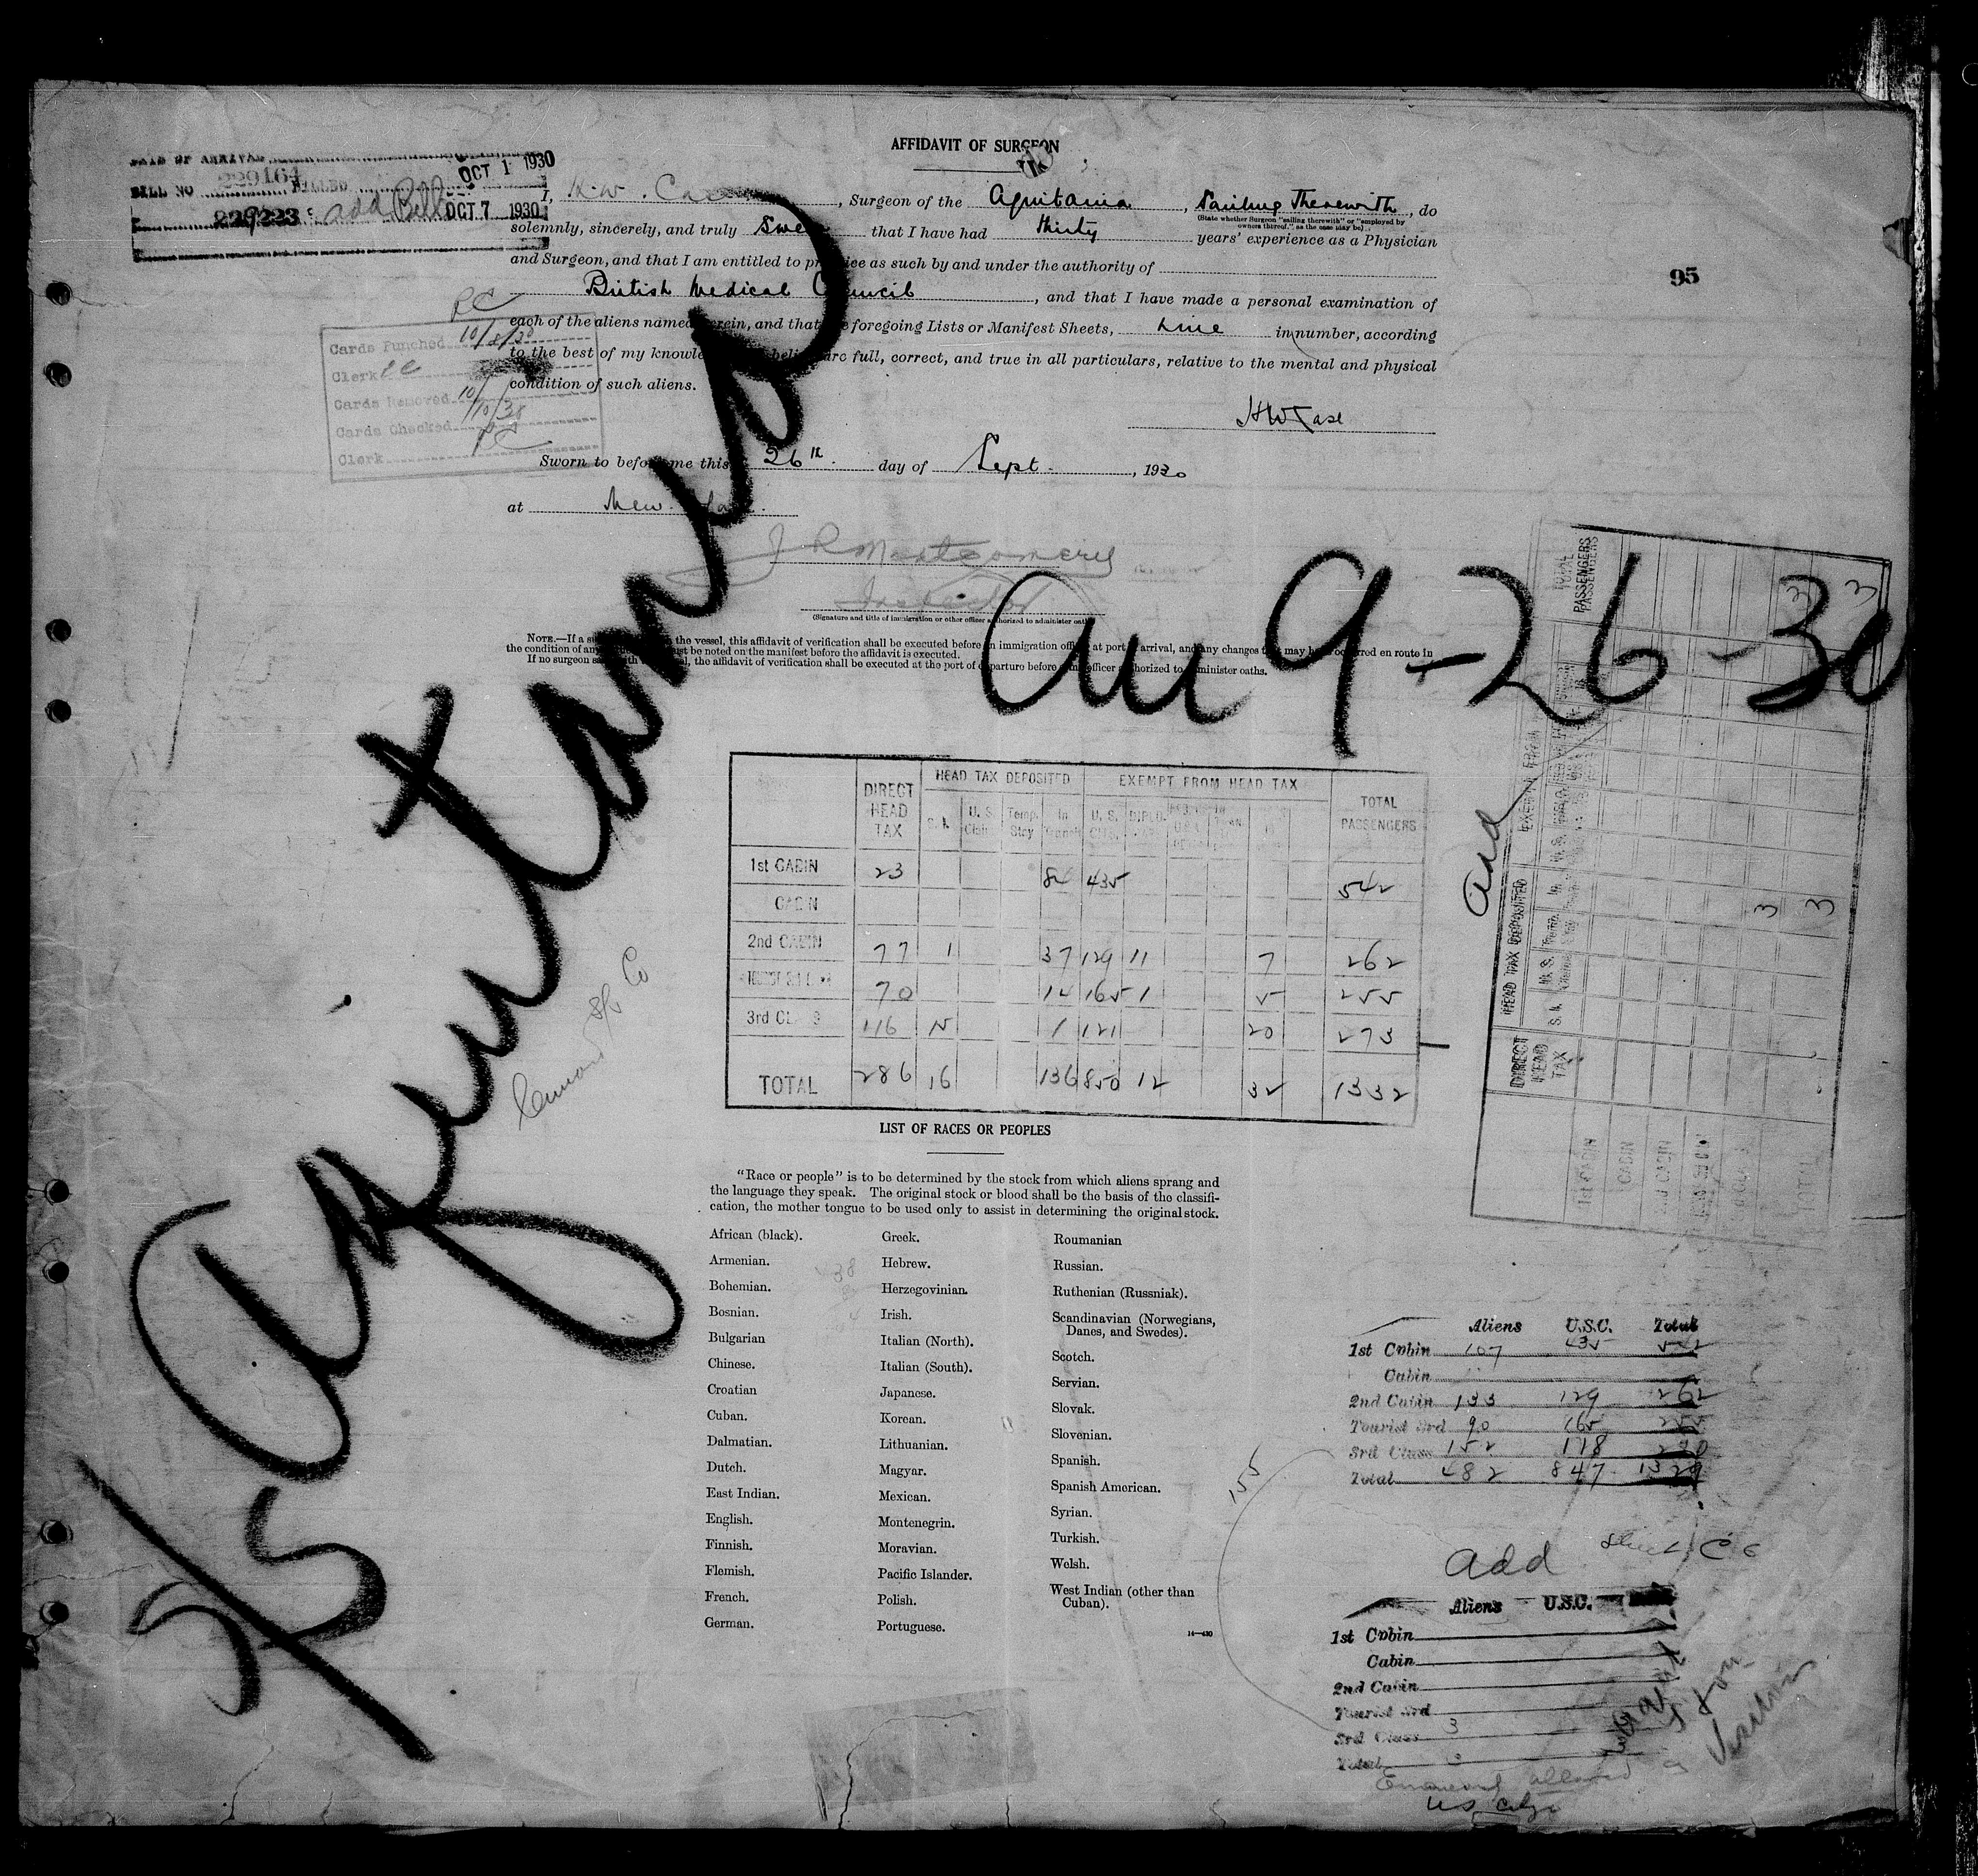 AFFIDAVIT OF SURGEON
DATE OF ARRIVAL
BILL NO 229164 FILLED OCT 1 1930
229223 add Bill OCT 7 1930
I, H.W. Case, Surgeon of the Aquitania, Sailing Therewith, do
(State whether Surgeon "sailing therewith" or "employed by
owners thereof," as the case may be)
solemnly, sincerely, and truly swear that I have had thirty years' experience as a Physician
and Surgeon, and that I am entitled to practice as such by and under the authority of
British Medical Council, and that I have made a personal examination of
each of the aliens named herein, and that the foregoing Lists or Manifest Sheets, in number, according
to the best of my knowledge and belief, are full, correct, and true in all particulars, relative to the mental and physical
condition of such aliens.
95
Cards Punched 10/8/38
Clerk
Cards Removed 10/10/38
Cards Checked
Clerk
HW Case
Sworn to before me this 26th day of Sept., 1930
at New
J R Montgomery
Inspector
(Signature and title of immigration or other officer authorized to administer oath)
NOTE.—If a surgeon sails with the vessel, this affidavit of verification shall be executed before an immigration officer at port of arrival, and any changes that may have occurred en route in
the condition of any must be noted on the manifest before the affidavit is executed.
If no surgeon sails with vessel, the affidavit of verification shall be executed at the port of departure before officer authorized to administer oaths.
S/S Aquitania
Arr 9-26-30
Cunard S/S Co
DIRECT HEAD TAX HEAD TAX DEPOSITED EXEMPT FROM HEAD TAX TOTAL PASSENGERS
S. I. U. S. Claim Temp. Stay In Transit U. S. CITS. DIPLO.
1st CABIN 23 84 435 542
CABIN
2nd CABIN 77 1 37 129 11 7 262
TOURIST 3rd 70 14 165 1 5 255
3rd CLASS 116 15 1 121 20 273
TOTAL 286 16 136 850 12 32 1332
add
TOTAL PASSENGERS
HEAD TAX DEPOSITED
DIRECT HEAD TAX
1st CABIN
CABIN
2nd CABIN
TOTAL
3 3
3 3
LIST OF RACES OR PEOPLES
"Race or people" is to be determined by the stock from which aliens sprang and
the language they speak. The original stock or blood shall be the basis of the classifi-
cation, the mother tongue to be used only to assist in determining the original stock.
African (black).
Armenian.
Bohemian.
Bosnian.
Bulgarian
Chinese.
Croatian
Cuban.
Dalmatian.
Dutch.
East Indian.
English.
Finnish.
Flemish.
French.
German.
Greek.
Hebrew.
Herzegovinian.
Irish.
Italian (North).
Italian (South).
Japanese.
Korean.
Lithuanian.
Magyar.
Mexican.
Montenegrin.
Moravian.
Pacific Islander.
Polish.
Portuguese.
Roumanian
Russian.
Ruthenian (Russniak).
Scandinavian (Norwegians,
Danes, and Swedes).
Scotch.
Servian.
Slovak.
Slovenian.
Spanish.
Spanish American.
Syrian.
Turkish.
Welsh.
West Indian (other than
Cuban).
14—430
Aliens U.S.C. Total
1st Cabin 107 435 542
Cabin
2nd Cabin 133 129 262
Tourist 3rd 90 165 255
3rd Class 152 118 270
Total 482 847 1329
155
add
Aliens U.S.C.
1st Cabin
Cabin
2nd Cabin
Tourist 3rd
3rd Class 3
Total 3
allowed as
US